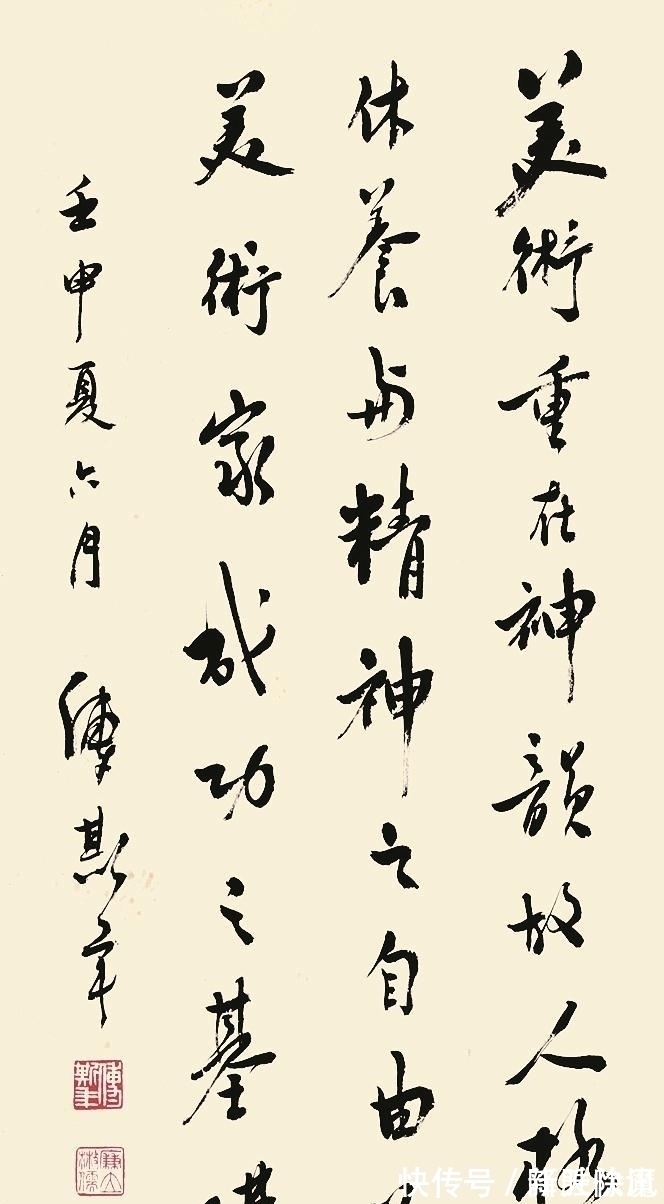 美術重在神韻故人格
休養與精神之自由
美術家成功之基
壬申夏六月 傅斯年
快传号